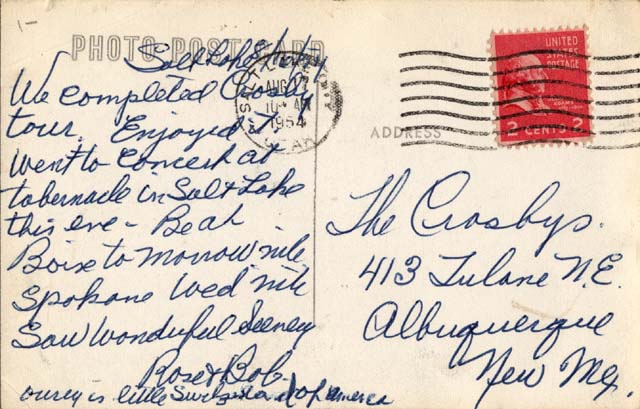 PHOTO POST CARD
Salt Lake
We completed Crosby
tour. Enjoyed it
went to Concert at
tabernacle in Salt Lake
this eve - Be at
Boise to morrow nite
Spokane Wed nite
Saw Wonderful Scenery
Rose & Bob.
ouray is little Switzerland of America
SALT LAKE CITY
AUG
10 AM
1954
UTAH
UNITED
STATES
POSTAGE
JOHN
ADAMS
2 CENTS 2
ADDRESS
The Crosbys.
413 Tulane N.E.
Albuquerque
New Mex.